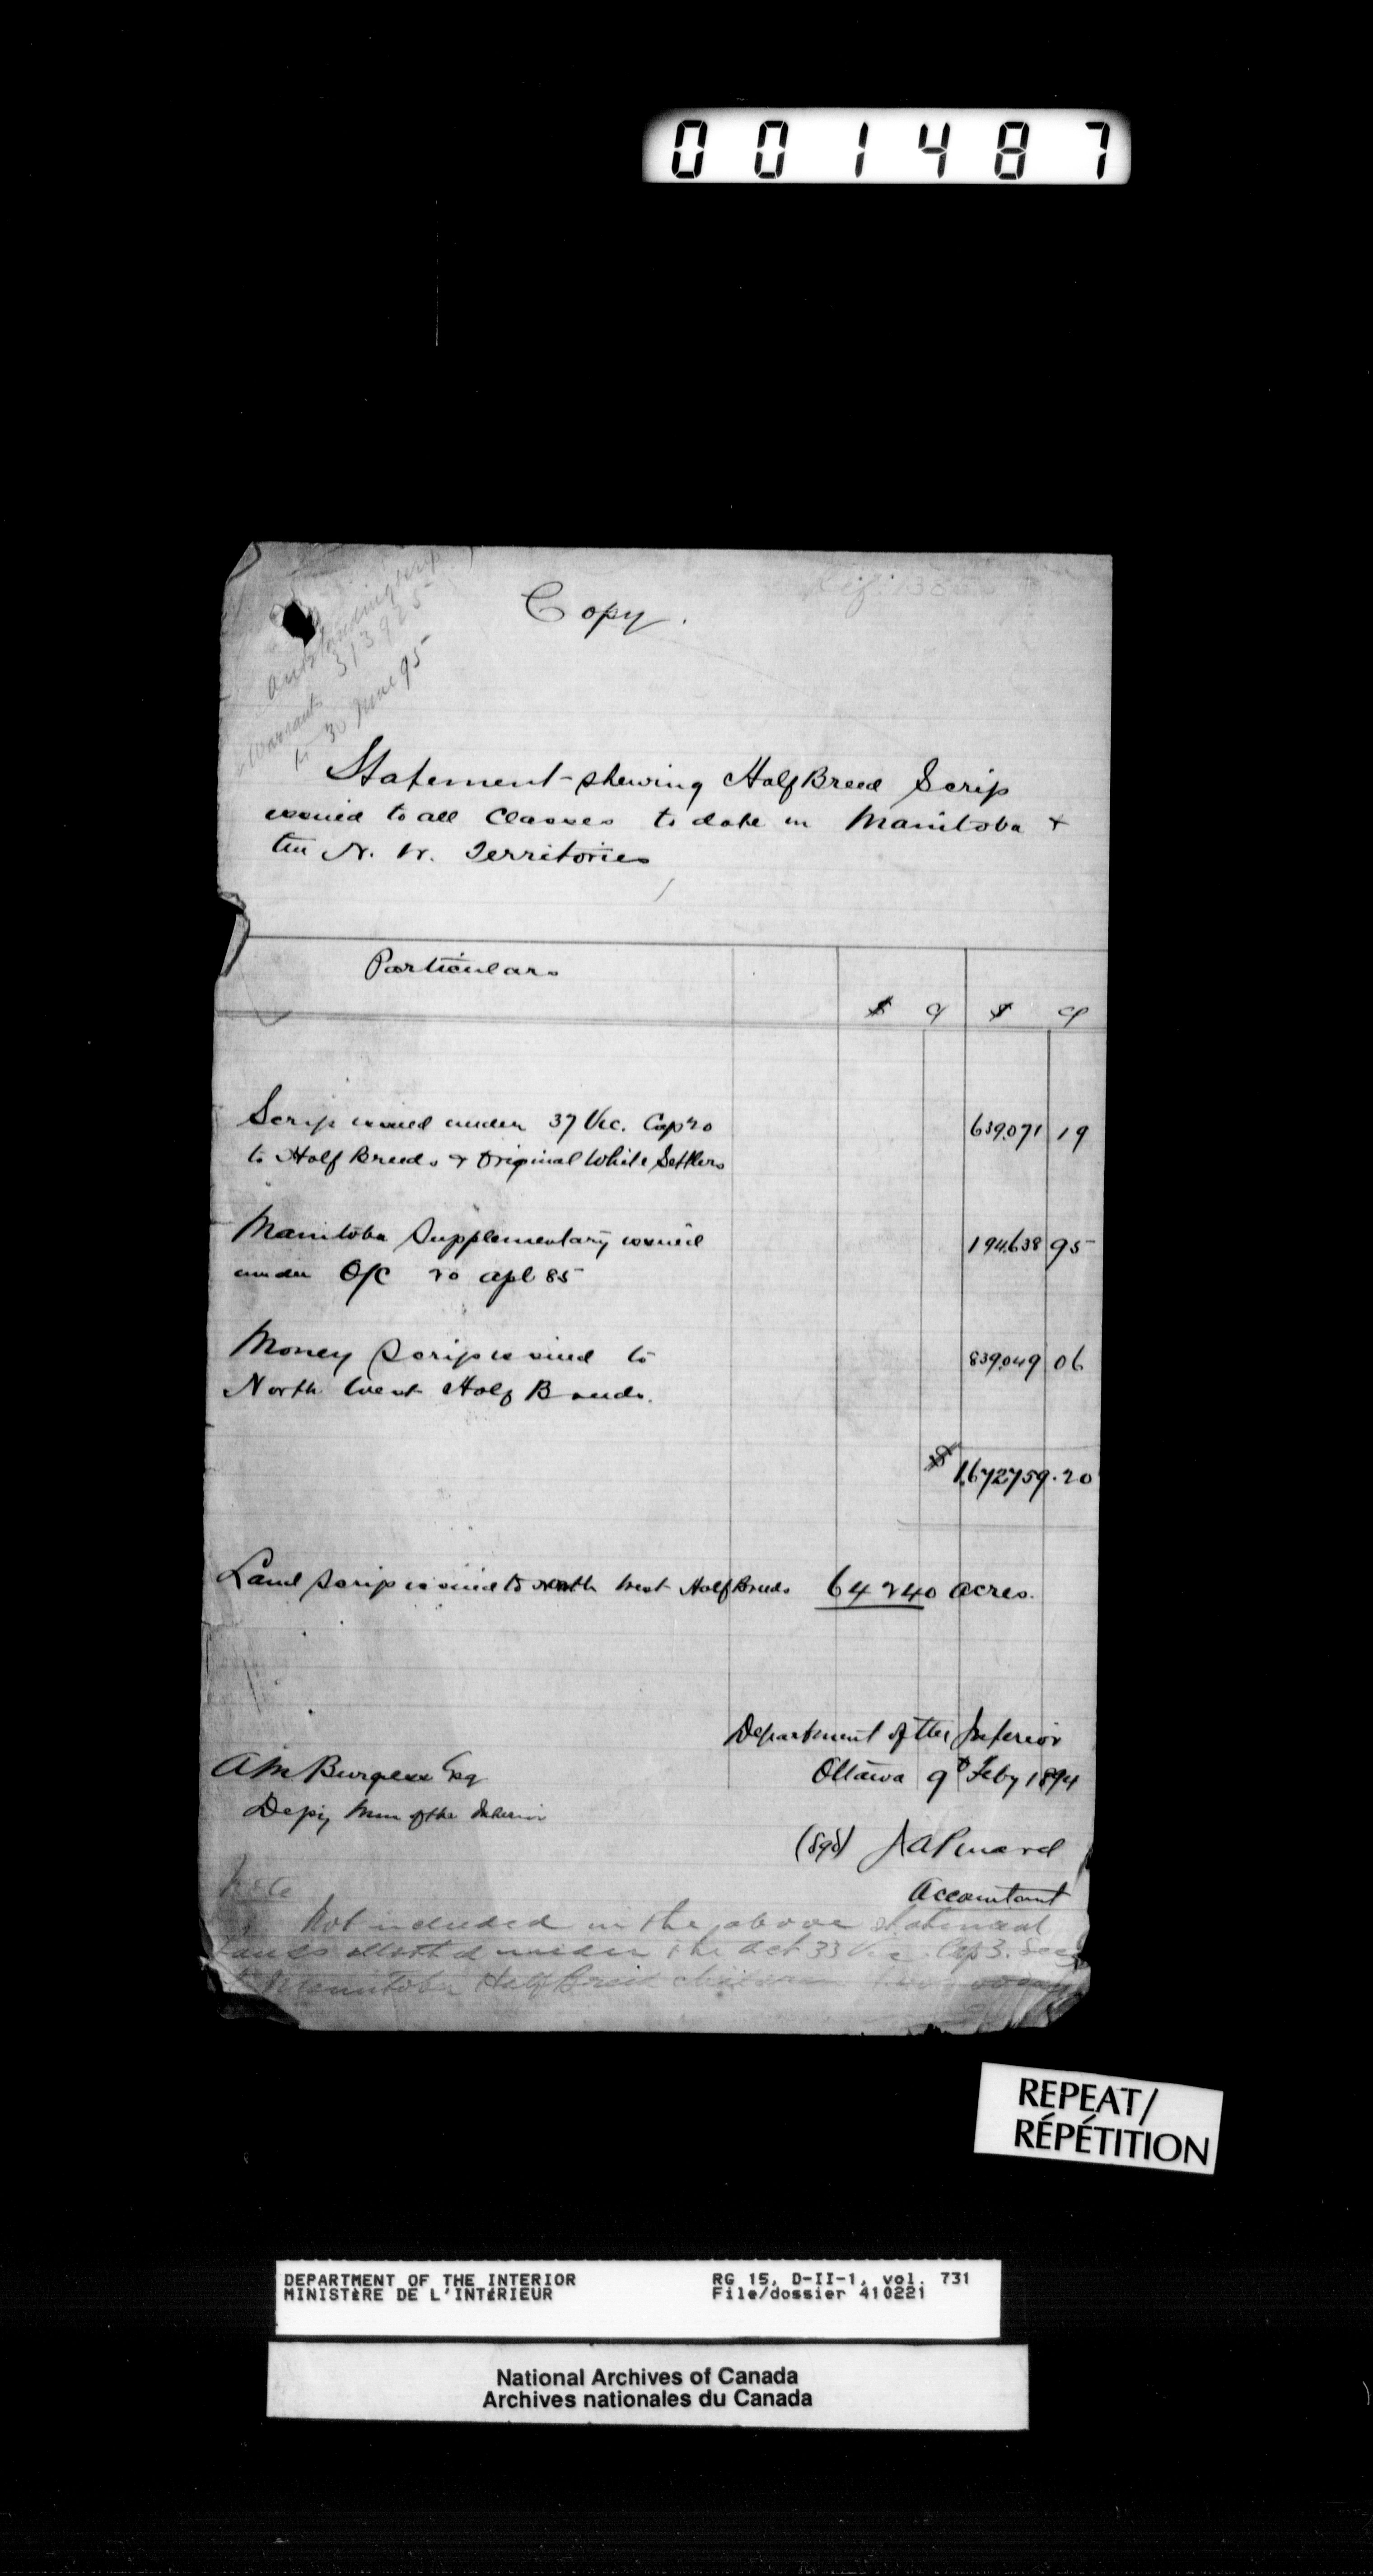 001487
Ref: 138
Copy.
Outstanding scrip
Warrants 313925
to 30 June 95
Statement shewing Half Breed Scrip
issued to all Classes to date in Manitoba &
the N. W. Territories
Particulars
$ c $ c
Scrip issued under 37 Vic. Cap 20 639,071 19
to Half Breeds & Original White Settlers
Manitoba Supplementary issued 194,638 95
under O/C 20 apl 85
Money Scrip issued to 839,049 06
North West Half Breeds.
$ 1,672,759.20
Land Scrip issued to North West Half Breeds 64 240 acres.
Department of the Interior
AM Burgess Esq Ottawa 9th Feby 1894
Depy Min of the Interior
(sgd) J A Pinard
Accountant
Note
Not included in the above statement
Lands allotted under the Act 33 Vic. Cap 3. Sec
to Manitoba Half Breed children
REPEAT/
RÉPÉTITION
DEPARTMENT OF THE INTERIOR RG 15, D-II-1, vol. 731
MINISTÈRE DE L'INTÉRIEUR File/dossier 410221
National Archives of Canada
Archives nationales du Canada